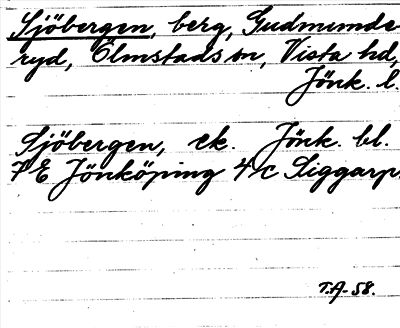 Sjöbergen, berg, Gudmunde-
ryd, Ölmstads sn, Vista hd,
Jönk. l.
Sjöbergen, ek. Jönk. bl.
7 E Jönköping 4 c Liggarp.
T.A. 58.